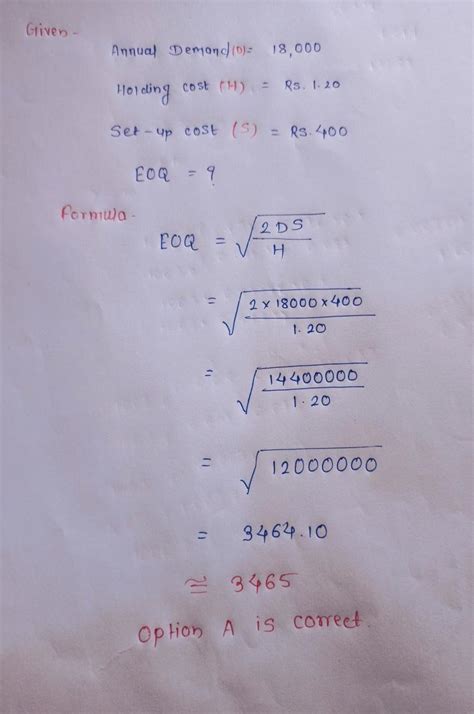 Given -
Annual Demand (D) = 18,000
Holding cost (H) = Rs. 1.20
Set-up cost (S) = Rs. 400
EOQ = ?
Formula -
EOQ = √(2DS / H)
= √(2 × 18000 × 400 / 1.20)
= √(14400000 / 1.20)
= √12000000
= 3464.10
≅ 3465
Option A is correct.